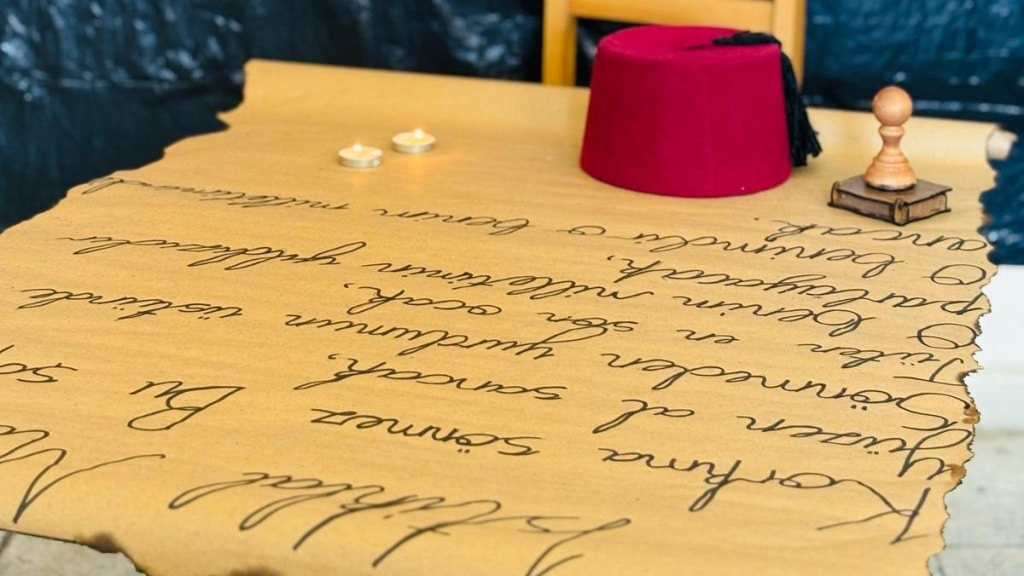 İstiklal Ma
Korkma sönmez Bu şa
yüzen al sancak,
Sönmeden yurdumun üstünde
Tüten en son ocak,
O benim milletimin yıldızıdır
parlayacak,
O benimdir o benim milletimindir
ancak.